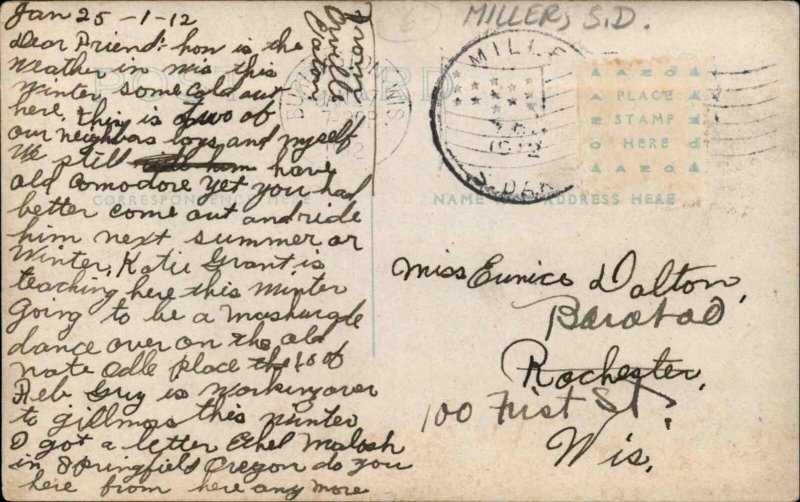 Jan 25 -1-12
Dear Friend:- how is the
weather in Wis this
winter, some cold out
here. this is two of
our neighbors boys and myself
We still have
old Comodore yet you had
better come out and ride
him next summer or
winter, Katie Grant is
teaching here this winter
going to be a Mashurgde
dance over on the old
Nate Odle place the 18 of
Feb Guy is working over
to Gillmos this winter
I got a letter Ethel Malosh
in Springfield Oregon do you
here from here any more
Orville
Eaton
MILLER, S.D.
MILLER
1912
S. DAK.
WIS.
POST CARD
CORRESPONDENCE HERE
NAME AND ADDRESS HERE
AZO
PLACE
STAMP
HERE
Miss Eunice Dalton,
Baraboo
Rochester,
100 First St.
Wis.